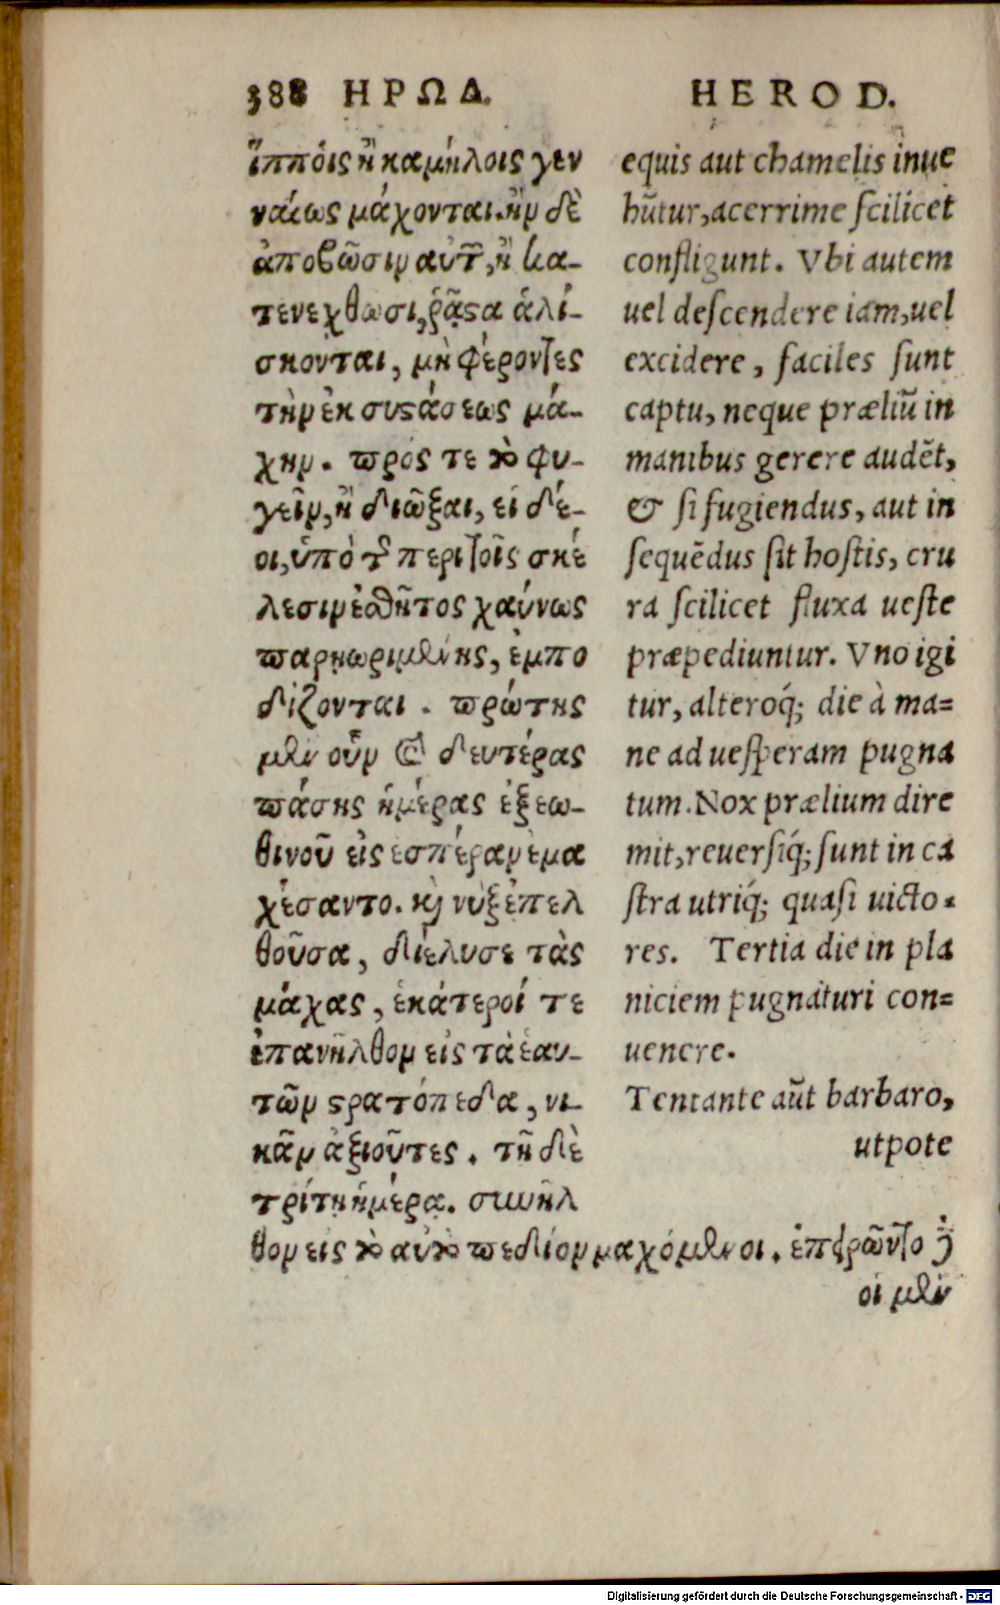 388 ΗΡΩΔ.
ἵπποις ἢ καμήλοις γεν
ναίως μάχονται. ἢν δὲ
ἀποβῶσιν αὐτῶν, ἢ κα-
τενεχθῶσι, ῥᾷστα ἁλί-
σκονται, μὴ φέροντες
τὴν ἐκ συστάσεως μά-
χην. πρός τε τὸ φυ-
γεῖν, ἢ διῶξαι, εἰ δέ-
οι, ὑπὸ τῆς περὶ τοῖς σκέ
λεσιν ἐσθῆτος χαύνως
παρῃωρημένης, ἐμπο
δίζονται. πρώτης
μὲν οὖν καὶ δευτέρας
πάσης ἡμέρας ἐξ ἑω-
θινοῦ εἰς ἑσπέραν ἐμα
χέσαντο. καὶ νὺξ ἐπελ
θοῦσα, διέλυσε τὰς
μάχας, ἑκάτεροί τε
ἐπανῆλθον εἰς τὰ ἑαυ-
τῶν στρατόπεδα, νι-
κᾶν ἀξιοῦντες. τῇ δὲ
τρίτῃ ἡμέρᾳ. συνῆλ
θον εἰς τὸ αὐτὸ πεδίον μαχόμενοι. ἐπειρῶντο δὲ
οἱ μὲν
HEROD.
equis aut chamelis inue
hūtur, acerrime scilicet
confligunt. Vbi autem
uel descendere iam, uel
excidere, faciles sunt
captu, neque præliū in
manibus gerere audēt,
& si fugiendus, aut in
sequēdus sit hostis, cru
ra scilicet fluxa ueste
præpediuntur. Vno igi
tur, alteroq́; die à ma=
ne ad uesperam pugna
tum. Nox prælium dire
mit, reuersiq́; sunt in ca
stra utriq́; quasi uicto-
res. Tertia die in pla
niciem pugnaturi con=
uenere.
Tentante aūt barbaro,
utpote
Digitalisierung gefördert durch die Deutsche Forschungsgemeinschaft - DFG